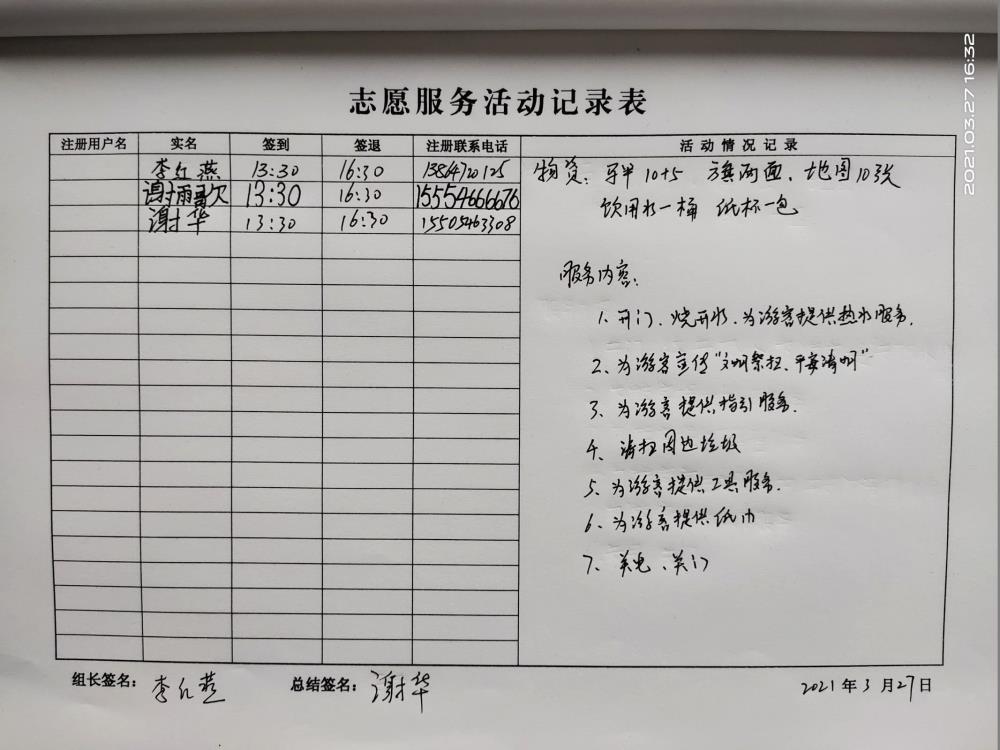 志愿服务活动记录表
注册用户名 实名 签到 签退 注册联系电话 活动情况记录
李红燕 13:30 16:30 13864720125
谢雨歌 13:30 16:30 15554666676
谢华 13:30 16:30 15505463308
物资: 10+5 旗两面、地图10张
饮用水一桶 纸杯一包
服务内容:
1、开门、烧开水、为游客提供热水服务.
2、为游客宣传“文明祭扫、平安清明”
3、为游客提供指引服务.
4、清扫周边垃圾
5、为游客提供工具服务.
6、为游客提供纸巾
7、关电、关门
组长签名: 李红燕 总结签名: 谢华 2021年3月27日
2021.03.27 16:32